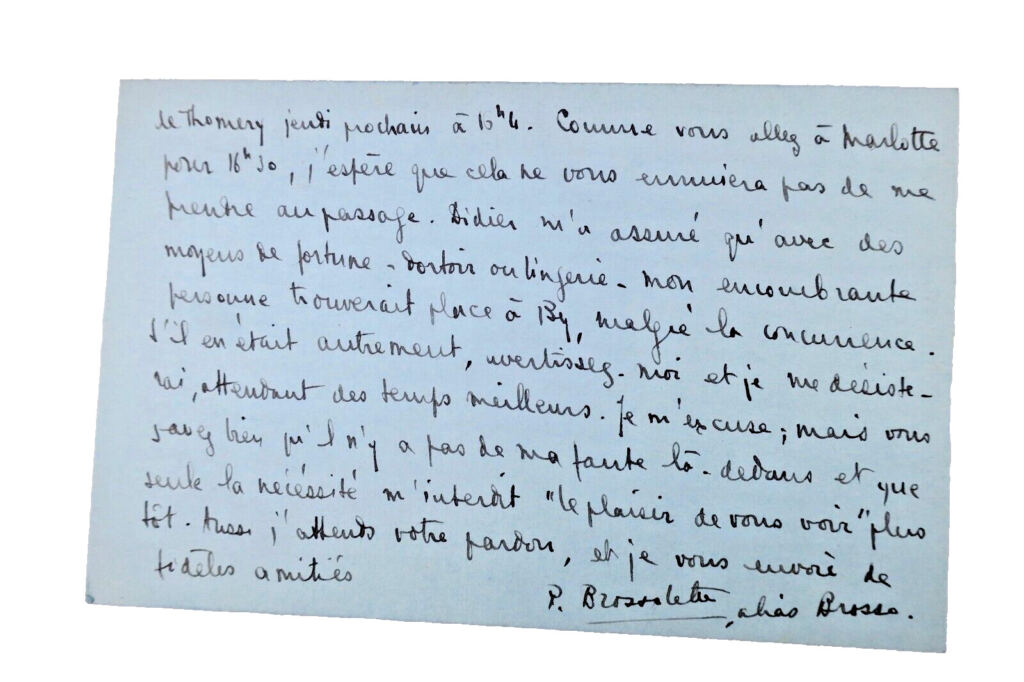 de Thomery jeudi prochain à 16h4. Comme vous allez à Marlotte
pour 16h30, j'espère que cela ne vous ennuiera pas de me
prendre au passage. Didier m'a assuré qu'avec des
moyens de fortune - dortoir ou lingerie - mon encombrante
personne trouverait place à By, malgré la concurrence.
S'il en était autrement, avertissez-moi et je me désiste-
rai, attendant des temps meilleurs. Je m'excuse ; mais vous
savez bien qu'il n'y a pas de ma faute là-dedans et que
seule la nécéssité m'interdit "le plaisir de vous voir" plus
tôt. Aussi j'attends votre pardon, et je vous envoie de
fidèles amitiés
P. Brossolette, alias Brosso.